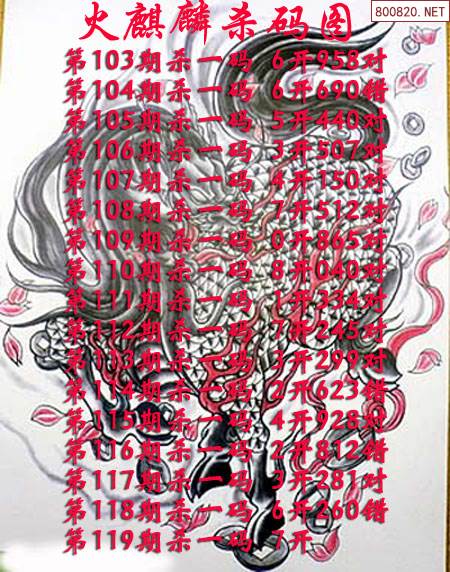 800820.NET
火麒麟杀码图
第103期杀一码 6开958对
第104期杀一码 6开690错
第105期杀一码 5开440对
第106期杀一码 3开507对
第107期杀一码 4开150对
第108期杀一码 7开512对
第109期杀一码 0开865对
第110期杀一码 8开040对
第111期杀一码 1开334对
第112期杀一码 7开245对
第113期杀一码 3开299对
第114期杀一码 2开623错
第115期杀一码 4开928对
第116期杀一码 2开812错
第117期杀一码 3开281对
第118期杀一码 6开260错
第119期杀一码 7开